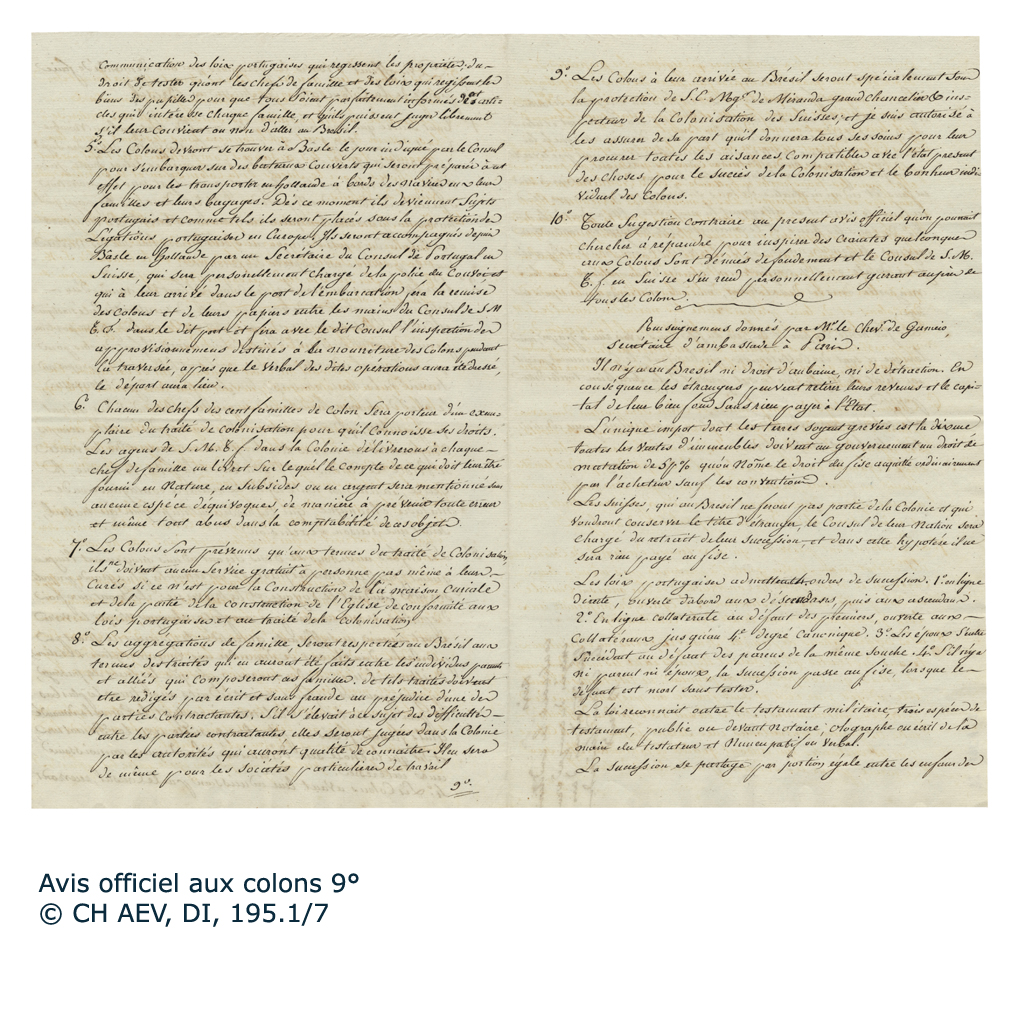 Communication des loix portugaises qui regissent les proprietés, du
droit de tester quant les chefs de famille et des loix qui regissent les
biens des pupilles pour que tous soient parfaitement informés des arti-
cles qui interesse chaque famille, et qu'ils puissent juger librement
s'il leur Convient ou non d'aller au Bresil.
5.° Les Colons devront se trouver à Basle le jour indiqué par le Consul
pour s'embarquer sur des bateaux Couverts qui seront préparés à cet
effet pour les transporter en hollande à bords des navires eux leur
familles et leurs bagages. Dès ce moment ils deviennent Sujets
portugais et comme tels ils seront placés sous la protection des
Légations portugaises en Europe. Ils seront accompagnés depuis
Basle en hollande par un Sécretaire du Consul de Portugal en
Suisse, qui sera personellement Chargé de la police du Convoi et
qui à leur arrivé dans le port de l'embarcation fera la remise
des Colons et de leurs papiers entre les mains du Consul de S. M
T. F. dans le dit port et fera avec le dit Consul l'inspection des
approvisionnemens destinés à la nourriture des Colons pendant
la traversée, après que le Verbal des dites operations aura été dressé,
le départ aura lieu.
6.° Chacun des chefs des cent familles de Colon Sera porteur d'un exem-
plaire du traité de Colonisation pour qu'il Connoisse ses droits.
Les agens de S. M. T. f. dans la Colonie délivreront à chaque
chef de famille un livret sur le quel le Compte de ce qui doit leur être
fourni en Nature, en Subsides ou en argent sera mentionné sans
aucune espéce d'équivoques, de manière à prévenir toute erreur
et même tout abus dans la comptabilité de ces objets.
7.° Les Colons Sont prévenus qu'aux termes du traité de Colonisation,
ils ne doivent aucun Service gratuit à personne pas même à leurs
Curés si ce n'est pour la Construction de la maison Curiale
et de la partie de la construction de l'Eglise de conformité aux
lois portugaises et au traité de la Colonisation
8.° Les aggrégations de famille, seront respectées au Brésil aux
termes des traités qui en auront été faits entre les individus parents
et alliés qui Composeront ces familles. de tels traités doivent
être redigés par écrit et sans fraude au préjudice d'une des
parties Contractantes. S'il s'élevait à ce sujet des difficultés
entre les parties contractantes, elles seront jugées dans la Colonie
par les autorités qui auront qualité de connaître. Il en sera
de même pour les Sociétés particulières de travail
9.°
9.° Les Colons à leur arrivée au Brésil seront spécialement sous
la protection de S. E. Mgr. de Miranda grand Chancelier & ins-
pecteur de la Colonisation des Suisses, et je suis autorisé à
les assurer de sa part qu'il donnera tous ses soins pour leur
procurer toutes les aisances, Compatibles avec l'état present
des Choses, pour le succès de la Colonisation et le bonheur indi-
viduel des Colons.
10.° Toute Sugestion contraire au present avis officiel qu'on pourrait
chercher à répandre pour inspirer des craintes quelconques
aux Colons Sont dénués de fondement et le Consul de S. M.
T. f. en Suisse s'en rend personnellement garant auprès de
tous les Colons.
Renseignemens donnés par Mr. le Chevr. de Gameiro,
secrétaire d'ambassade à Paris.
Il n'y a au Bresil ni droit d'aubaine, ni de détraction. En
conséquence les étrangers peuvent retirer leurs revenus et le capi-
tal de leur bien fond Sans rien payer à l'Etat.
L'unique impot dont les terres soyent grevées est la dixme
toutes les Ventes d'immeubles doivent au gouvernement un droit de
mutation de 5 p% qu'on nôme le droit du fisc acquitté ordinairement
par l'acheteur sauf les conventions.
Les Suisses, qui au Bresil ne feront pas partie de la Colonie et qui
voudront conserver le titre d'étranger, le Consul de leur Nation sera
Chargé du retrait de leur succession, et dans cette hypotése il ne
sera rien payé au fisc.
Les loix portugaises admettent ordres de sucession. 1.° en ligne
directe, ouverte d'abord aux déscendans, puis aux ascendans.
2.° En ligne collaterale au défaut des premiers, ouverte aux
Collatéraux jusqu'au 4.e degré Canonique. 3.° Les époux S'entre
Succèdent au défaut des parens de la même Souche. 4.° S'il n'y a
ni parent ni époux, la sucession passe au fisc, lorsque le
défunt est mort sans tester.
La loi reconnait outre le testament militaire, trois espèces de
testament, public ou devant notaire, olographe ou écrit de la
main du testateur et Nuncupatif ou Verbal.
La sucession se partage par portion egale entre les enfans des
Avis officiel aux colons 9°
© CH AEV, DI, 195.1/7